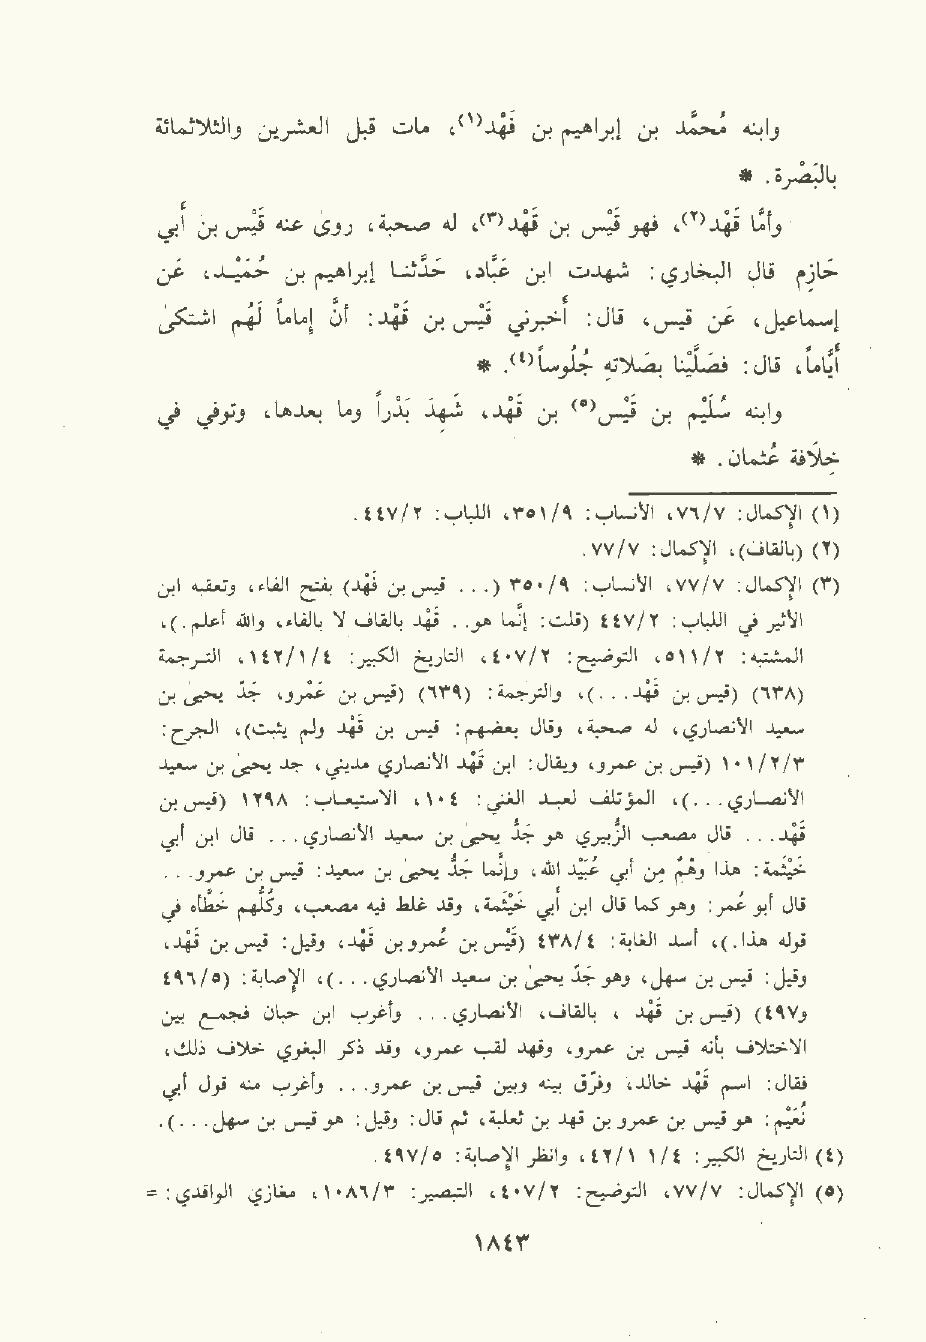 وابنه مُحمَّد بن إبراهيم بن فَهْد(١)، مات قبل العشرين والثلاثمائة
بالبَصْرة. *
وأمَّا قَهْد(٢)، فهو قَيْس بن قَهْد(٣)، له صحبة، روى عنه قَيْس بن أَبي
حَازِم قال البخاري: شهدت ابن عَبَّاد، حَدَّثنا إبراهيم بن حُمَيْد، عَن
إسماعيل، عَن قيس، قال: أَخبرني قَيْس بن قَهْد: أَنَّ إِماماً لَهُم اشتكىٰ
أَيَّاماً، قال: فصَلَّيْنا بصَلاتهِ جُلُوساً(٤). *
وابنه سُلَيْم بن قَيْس(٥) بن قَهْد، شَهِدَ بَدْراً وما بعدها، وتوفي في
خِلَافة عُثمان. *
(١) الإكمال: ٧٦/٧، الأنساب: ٣٥١/٩، اللباب: ٤٤٧/٢.
(٢) (بالقاف)، الإكمال: ٧٧/٧.
(٣) الإكمال: ٧٧/٧، الأنساب: ٣٥٠/٩ (... قيس بن فَهْد) بفتح الفاء، وتعقبه ابن
الأثير في اللباب: ٤٤٧/٢ (قلت: إنَّما هو.. قَهْد بالقاف لا بالفاء، والله أعلم.)،
المشتبه: ٥١١/٢، التوضيح: ٤٠٧/٢، التاريخ الكبير: ١٤٢/١/٤، الترجمة
(٦٣٨) (قيس بن قَهْد...)، والترجمة: (٦٣٩) (قيس بن عَمْرو، جَدّ يحيىٰ بن
سعيد الأنصاري، له صحبة، وقال بعضهم: قيس بن قَهْد ولم يثبت)، الجرح:
١٠١/٢/٣ (قيس بن عمرو، ويقال: ابن قَهْد الأنصاري مديني، جد يحيىٰ بن سعيد
الأنصاري...)، المؤتلف لعبد الغني: ١٠٤، الاستيعاب: ١٢٩٨ (قيس بن
قَهْد... قال مصعب الزُّبيري هو جَدّ يحيىٰ بن سعيد الأنصاري... قال ابن أبي
خَيْثَمة: هذا وهْمٌ مِن أبي عُبَيْد الله، وإنَّما جَدُّ يحيىٰ بن سعيد: قيس بن عمرو...
قال أبو عُمر: وهو كما قال ابن أَبي خَيْثَمة، وقد غلط فيه مصعب، وكُلُّهم خطَّأه في
قوله هذا.)، أسد الغابة: ٤٣٨/٤ (قَيْس بن عَمرو بن قَهْد، وقيل: قيس بن قَهْد،
وقيل: قيس بن سهل، وهو جَدّ يحيىٰ بن سعيد الأنصاري...)، الإصابة: (٤٩٦/٥
و٤٩٧) (قيس بن قَهْد ، بالقاف، الأنصاري... وأغرب ابن حبان فجمع بين
الاختلاف بأنه قيس بن عمرو، وقهد لقب عمرو، وقد ذكر البغوي خلاف ذلك،
فقال: اسم قَهْد خالد، وفرَّق بينه وبين قيس بن عمرو... وأغرب منه قول أبي
نُعَيْم: هو قيس بن عمرو بن قهد بن ثعلبة، ثم قال: وقيل: هو قيس بن سهل...).
(٤) التاريخ الكبير: ١/٤ ٤٢/١، وانظر الإصابة: ٤٩٧/٥.
(٥) الإكمال: ٧٧/٧، التوضيح: ٤٠٧/٢، التبصير: ١٠٨٦/٣، مغازي الواقدي: =
١٨٤٣